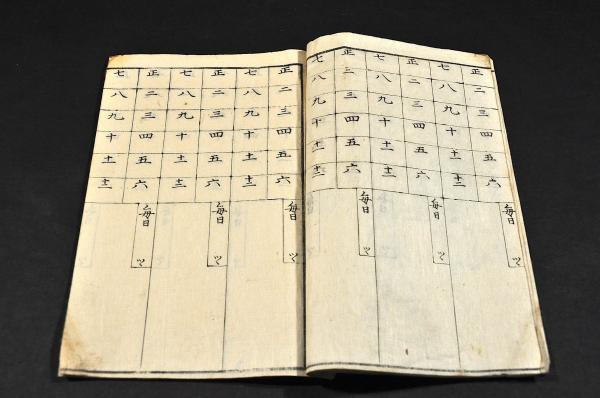 正二三四五六
七八九十十一十二
毎日 つゝ
正二三四五六
七八九十十一十二
毎日 つゝ
正二三四五六
七八九十十一十二
毎日 つゝ
正二三四五六
七八九十十一十二
毎日 つゝ
正二三四五六
七八九十十一十二
毎日 つゝ
正二三四五六
七八九十十一十二
毎日 つゝ